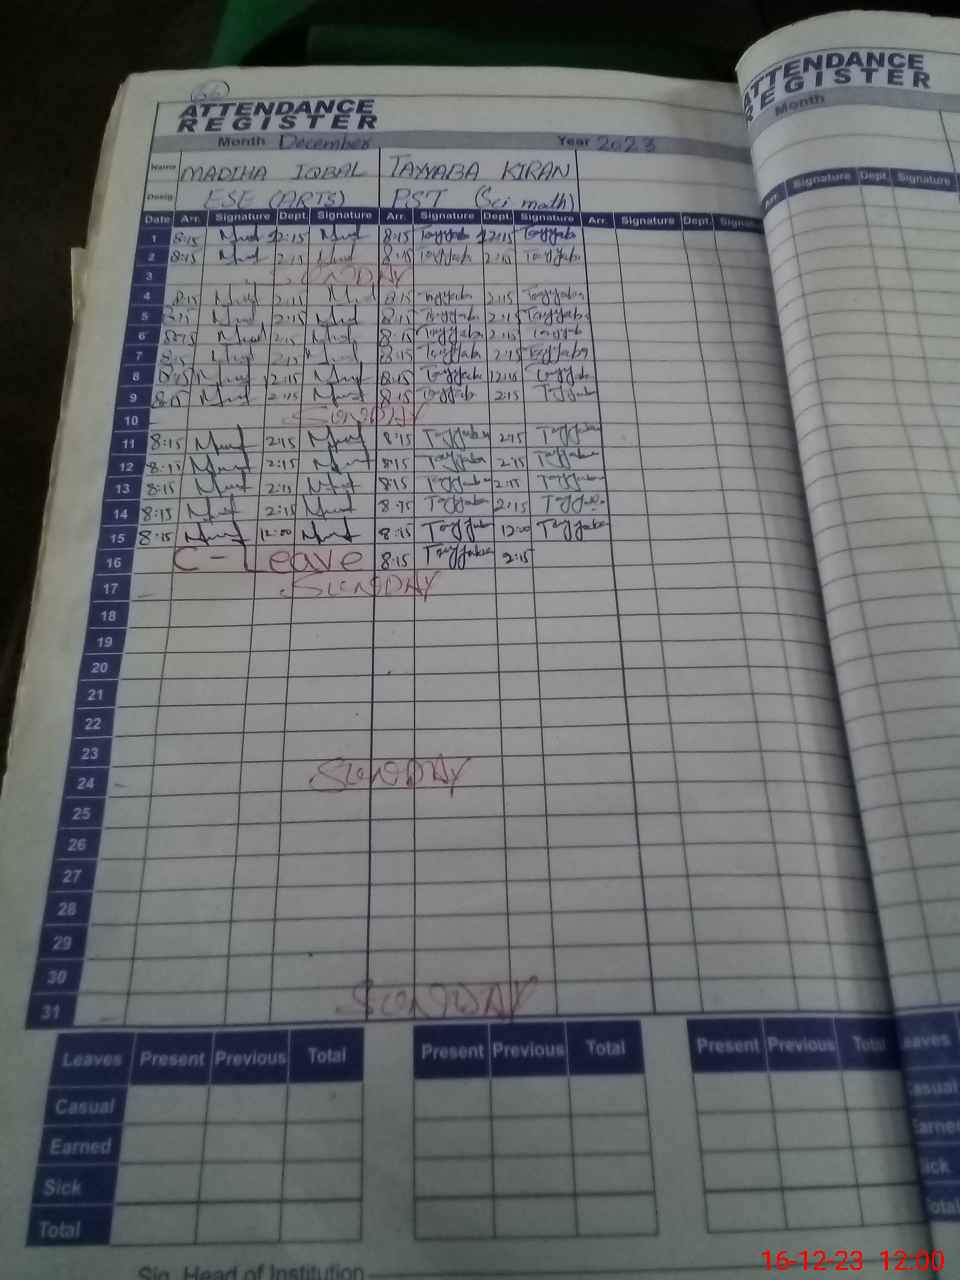 56
ATTENDANCE
REGISTER
Month December Year 2023
Name MADIHA IQBAL TAYYABA KIRAN
Desig. ESE (ARTS) PST (Sci math)
Date Arr. Signature Dept. Signature Arr. Signature Dept. Signature Arr. Signature Dept. Signature
1 8:15 12:15 8:15 Tayyaba 12:15 Tayyaba
2 8:15 2:15 8:15 Tayyaba 2:15 Tayyaba
3 SUNDAY
4 8:15 2:15 8:15 Tayyaba 2:15 Tayyaba
5 8:15 2:15 8:15 Tayyaba 2:15 Tayyaba
6 8:15 2:15 8:15 Tayyaba 2:15 Tayyab
7 8:15 2:15 8:15 Tayyaba 2:15 Tayyaba
8 8:15 12:15 8:15 Tayyaba 12:15 Tayyaba
9 8:15 2:15 8:15 Tayyaba 2:15 Tayyaba
10 SUNDAY
11 8:15 2:15 8:15 Tayyaba 2:15 Tayyaba
12 8:15 2:15 8:15 Tayyaba 2:15 Tayyaba
13 8:15 2:15 8:15 Tayyaba 2:15 Tayyaba
14 8:15 2:15 8:15 Tayyaba 2:15 Tayyaba
15 8:15 12:00 8:15 Tayyaba 12:00 Tayyaba
16 C - Leave 8:15 Tayyaba 2:15
17 SUNDAY
18
19
20
21
22
23
24 SUNDAY
25
26
27
28
29
30
31 SUNDAY
Leaves Present Previous Total Present Previous Total Present Previous Total
Casual
Earned
Sick
Total
Sig. Head of Institution
ATTENDANCE
REGISTER
Month
Arr. Signature Dept. Signature
16-12-23 12:00